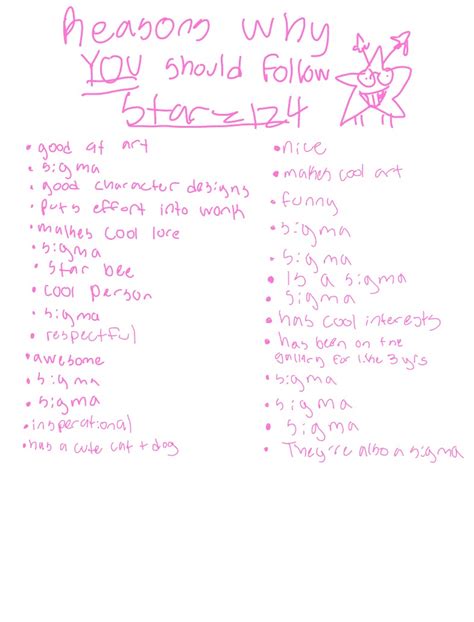 Reasons why
YOU should follow
Starz124
• good at art
• sigma
• good character designs
• puts effort into work
• makhes cool lore
• sigma
• star bee
• cool person
• sigma
• respectful
• awesome
• sigma
• sigma
• insperational
• has a cute cat + dog
• nice
• makes cool art
• funny
• sigma
• sigma
• Is a sigma
• sigma
• has cool interests
• has been on the
gallery for like 3 yrs
• sigma
• sigma
• sigma
• They're also a sigma